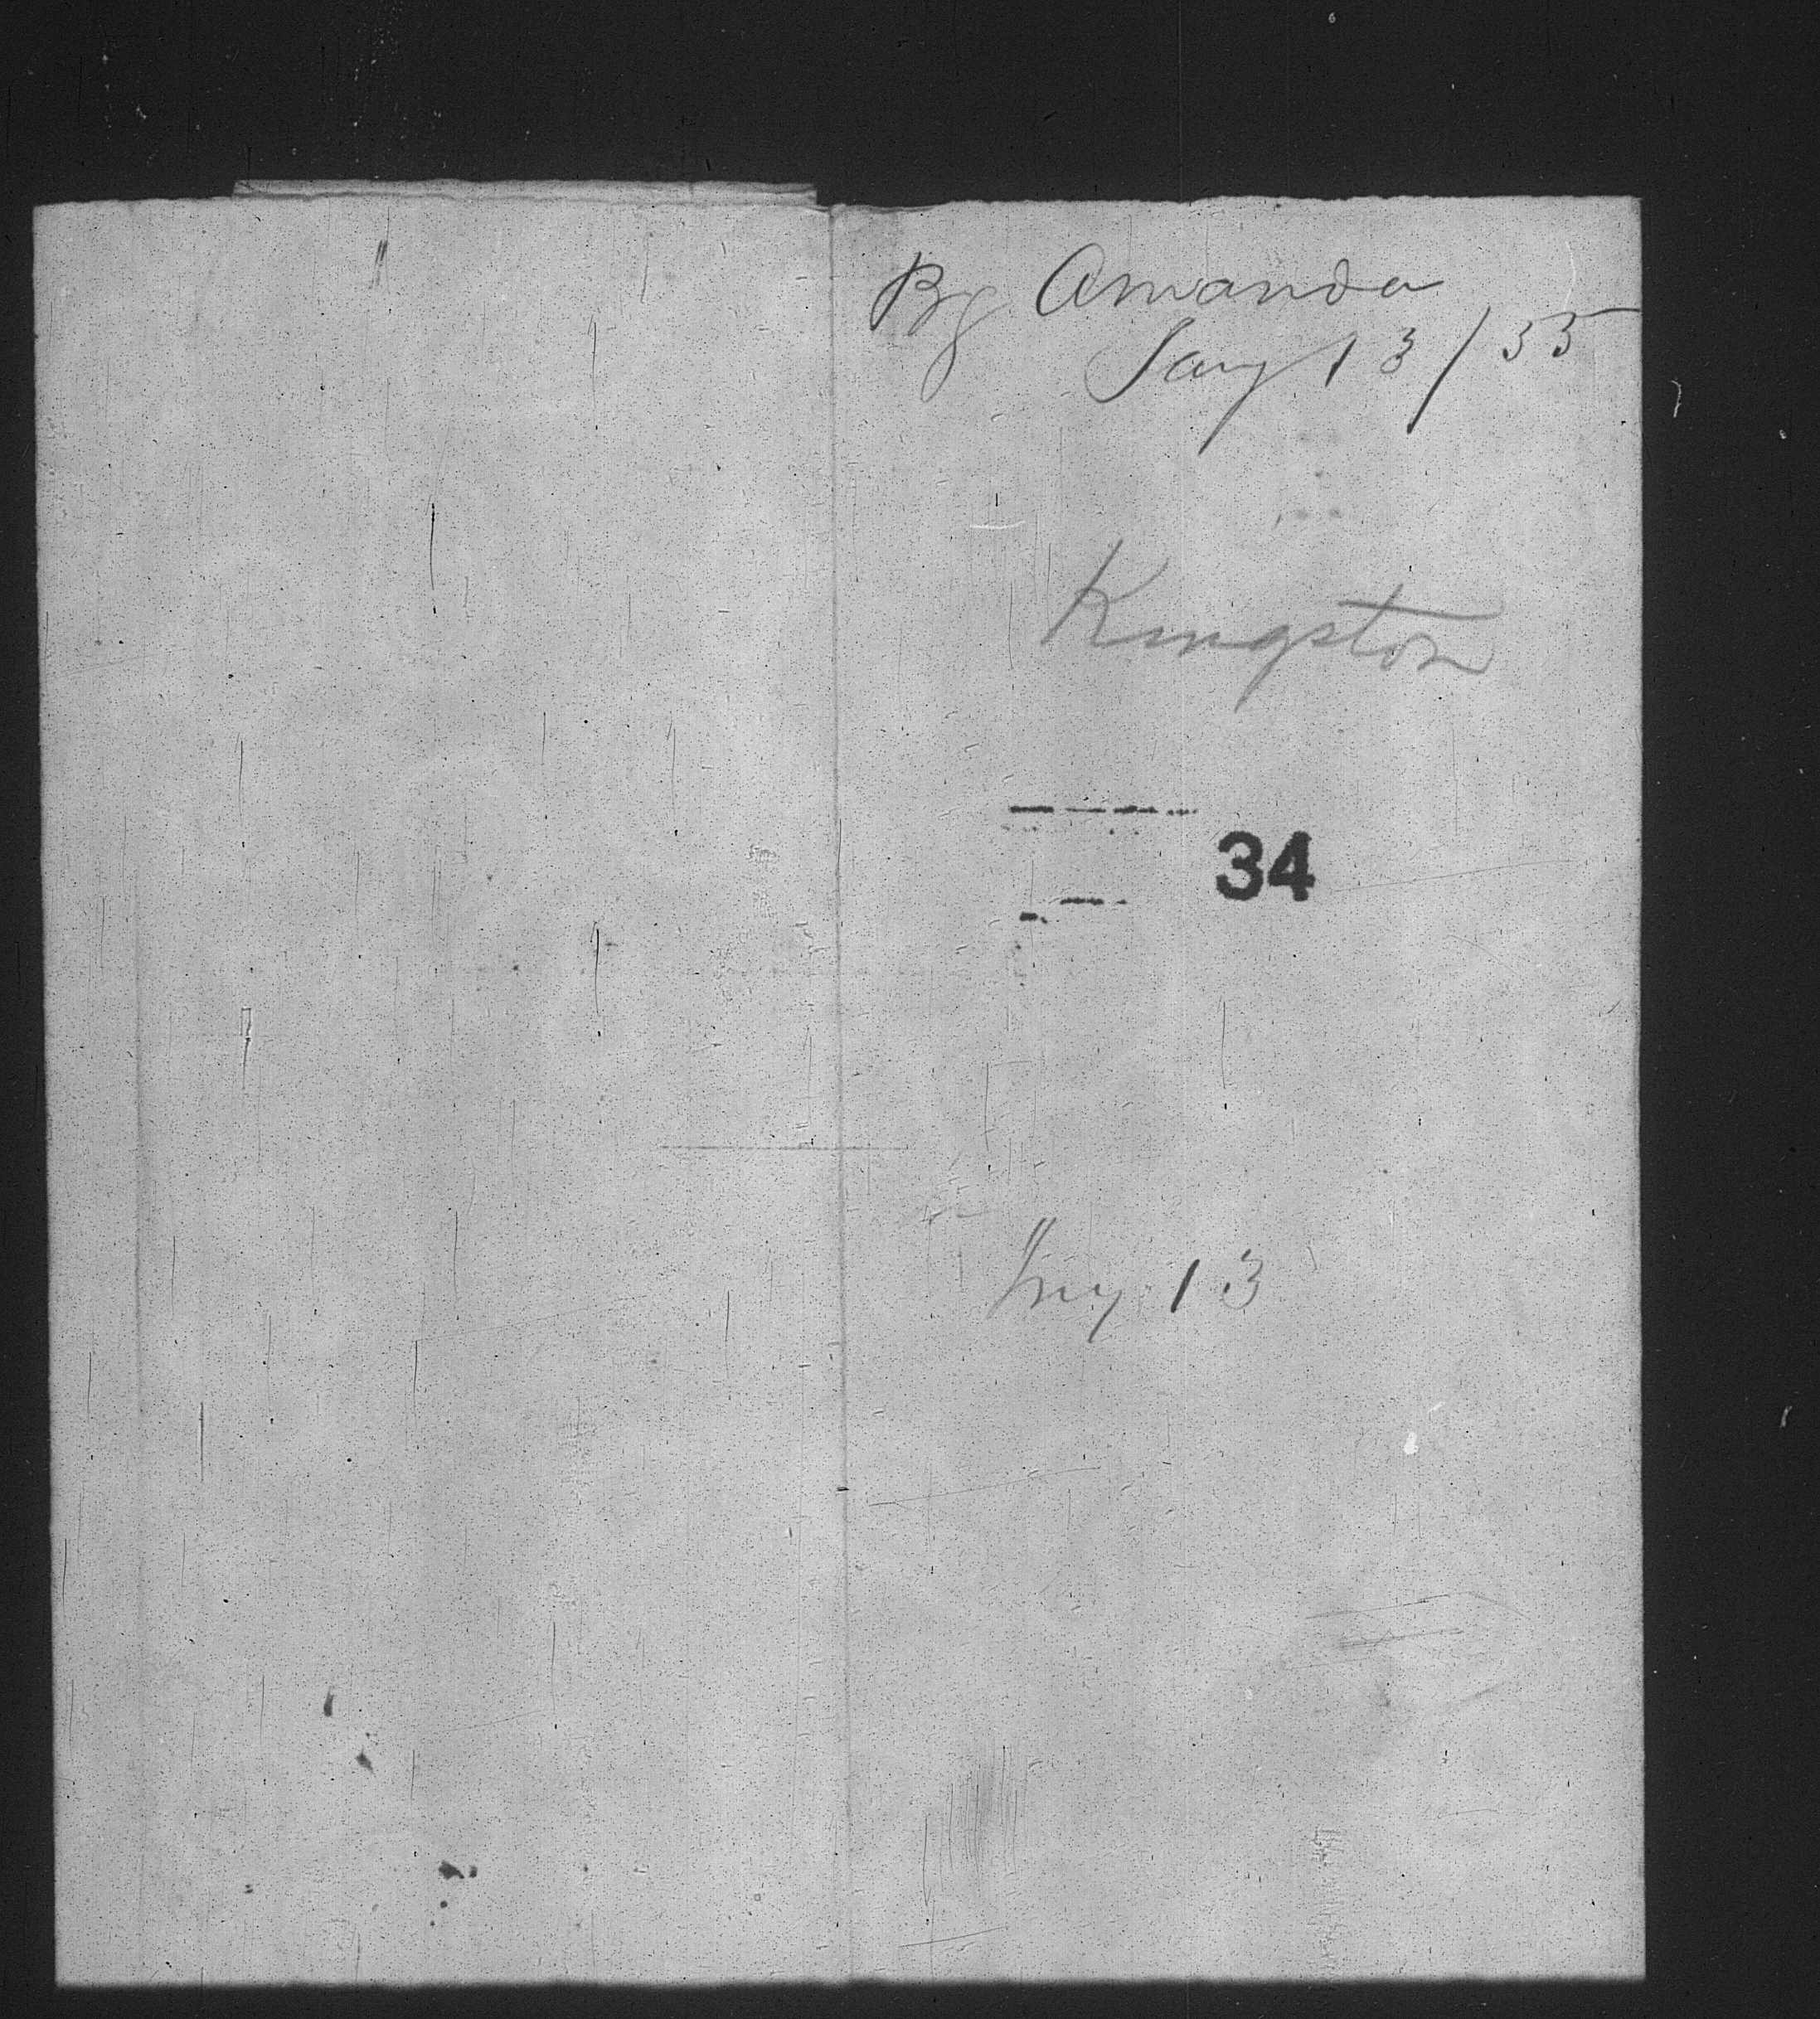 Bg Amanda
Jany 13/35
Kingston
34
Jny 13